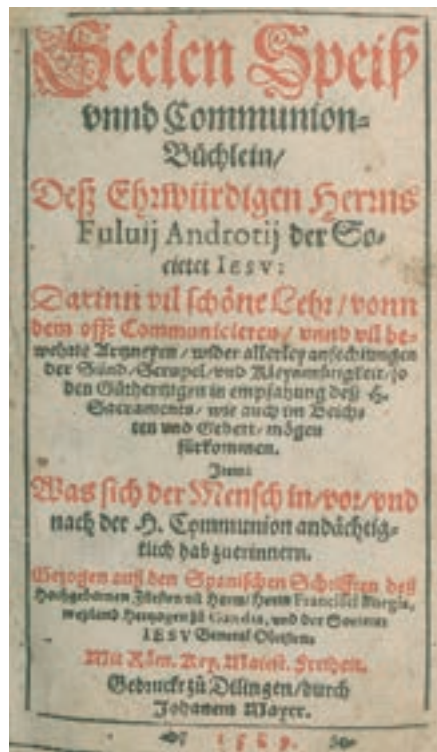 Seelen Speiß
vnnd Communion-
Büchlein/
Deß Ehrwürdigen Herrns
Fuluij Androtij der So-
cietet IESV:
Darinn vil schöne Lehr/vonn
dem offt Communicieren/vnnd vil be-
wehrte Artzneyen/wider allerley anfechtungen
der Sünd/Scrupel/vnd Kleynmütigkeit/so
den Gůthertzigen in empfahung deß H.
Sacraments/wie auch im Beich-
ten vnd Gebett/mögen
fürkommen.
Item:
Was sich der Mensch in/vor/vnd
nach der H. Communion andächtig-
klich hab zuerinnern.
Gezogen auß den Spanischen Schrifften deß
Hochgebornen Fürsten vñ Herrn/Herrn Francisci Borgiæ,
weyland Hertzogen zů Gandia, vnd der Societet
IESV General Obristen.
Mit Röm. Key. Maiest. Freiheit.
Gedruckt zů Dilingen/durch
Johañem Mayer.